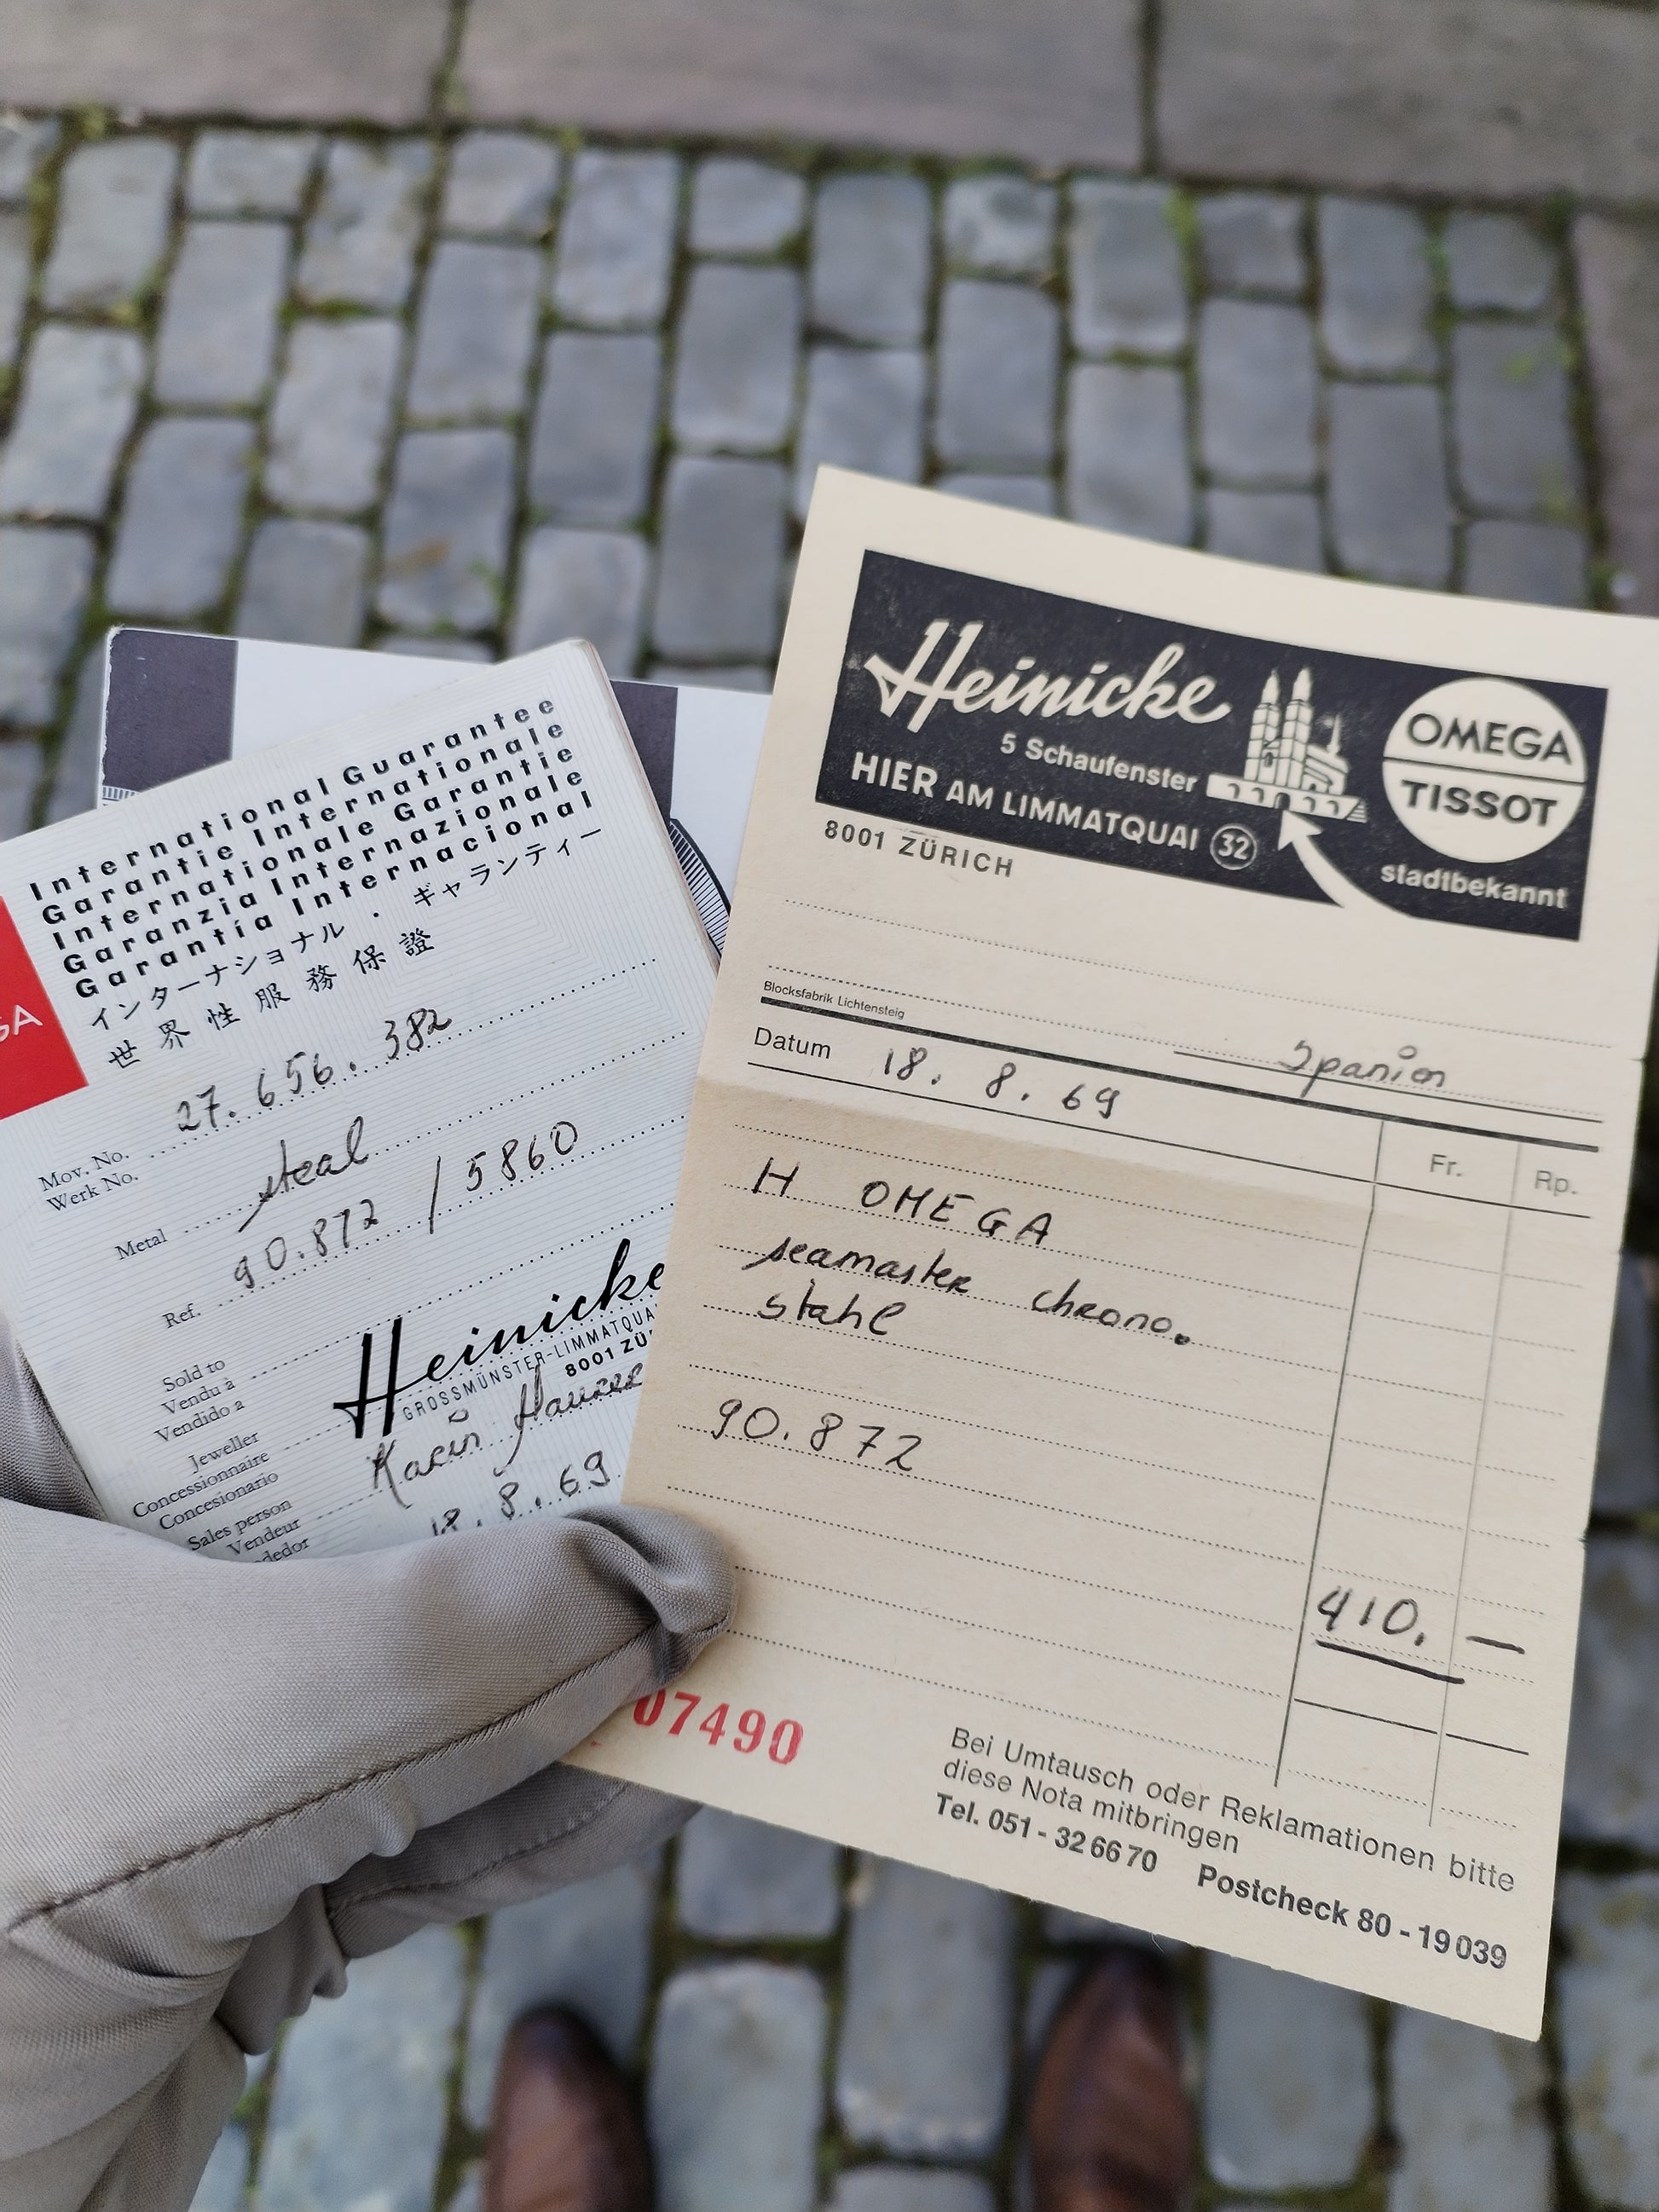 International Guarantee
Garantie Internationale
Internationale Garantie
Garanzia Internazionale
Garantía Internacional
インターナショナル・ギャランティー
世界性服務保證
GA
Mov. No. 27.656.382
Werk No.
Metal steal
Ref. 90.872 / 5860
Sold to
Vendu à
Vendido a
Heinicke
GROSSMÜNSTER-LIMMATQUA
8001 ZÜ
Jeweller
Concessionnaire
Concesionario
Sales person Karin
Vendeur
dedor
18.8.69
Heinicke
5 Schaufenster
HIER AM LIMMATQUAI 32
OMEGA
TISSOT
stadtbekannt
8001 ZÜRICH
Blocksfabrik Lichtensteig
Spanien
Datum 18. 8. 69
Fr. Rp.
H OMEGA
seamaster chrono.
stahl
90.872
410. —
07490
Bei Umtausch oder Reklamationen bitte
diese Nota mitbringen
Tel. 051 - 32 66 70 Postcheck 80 - 19 039